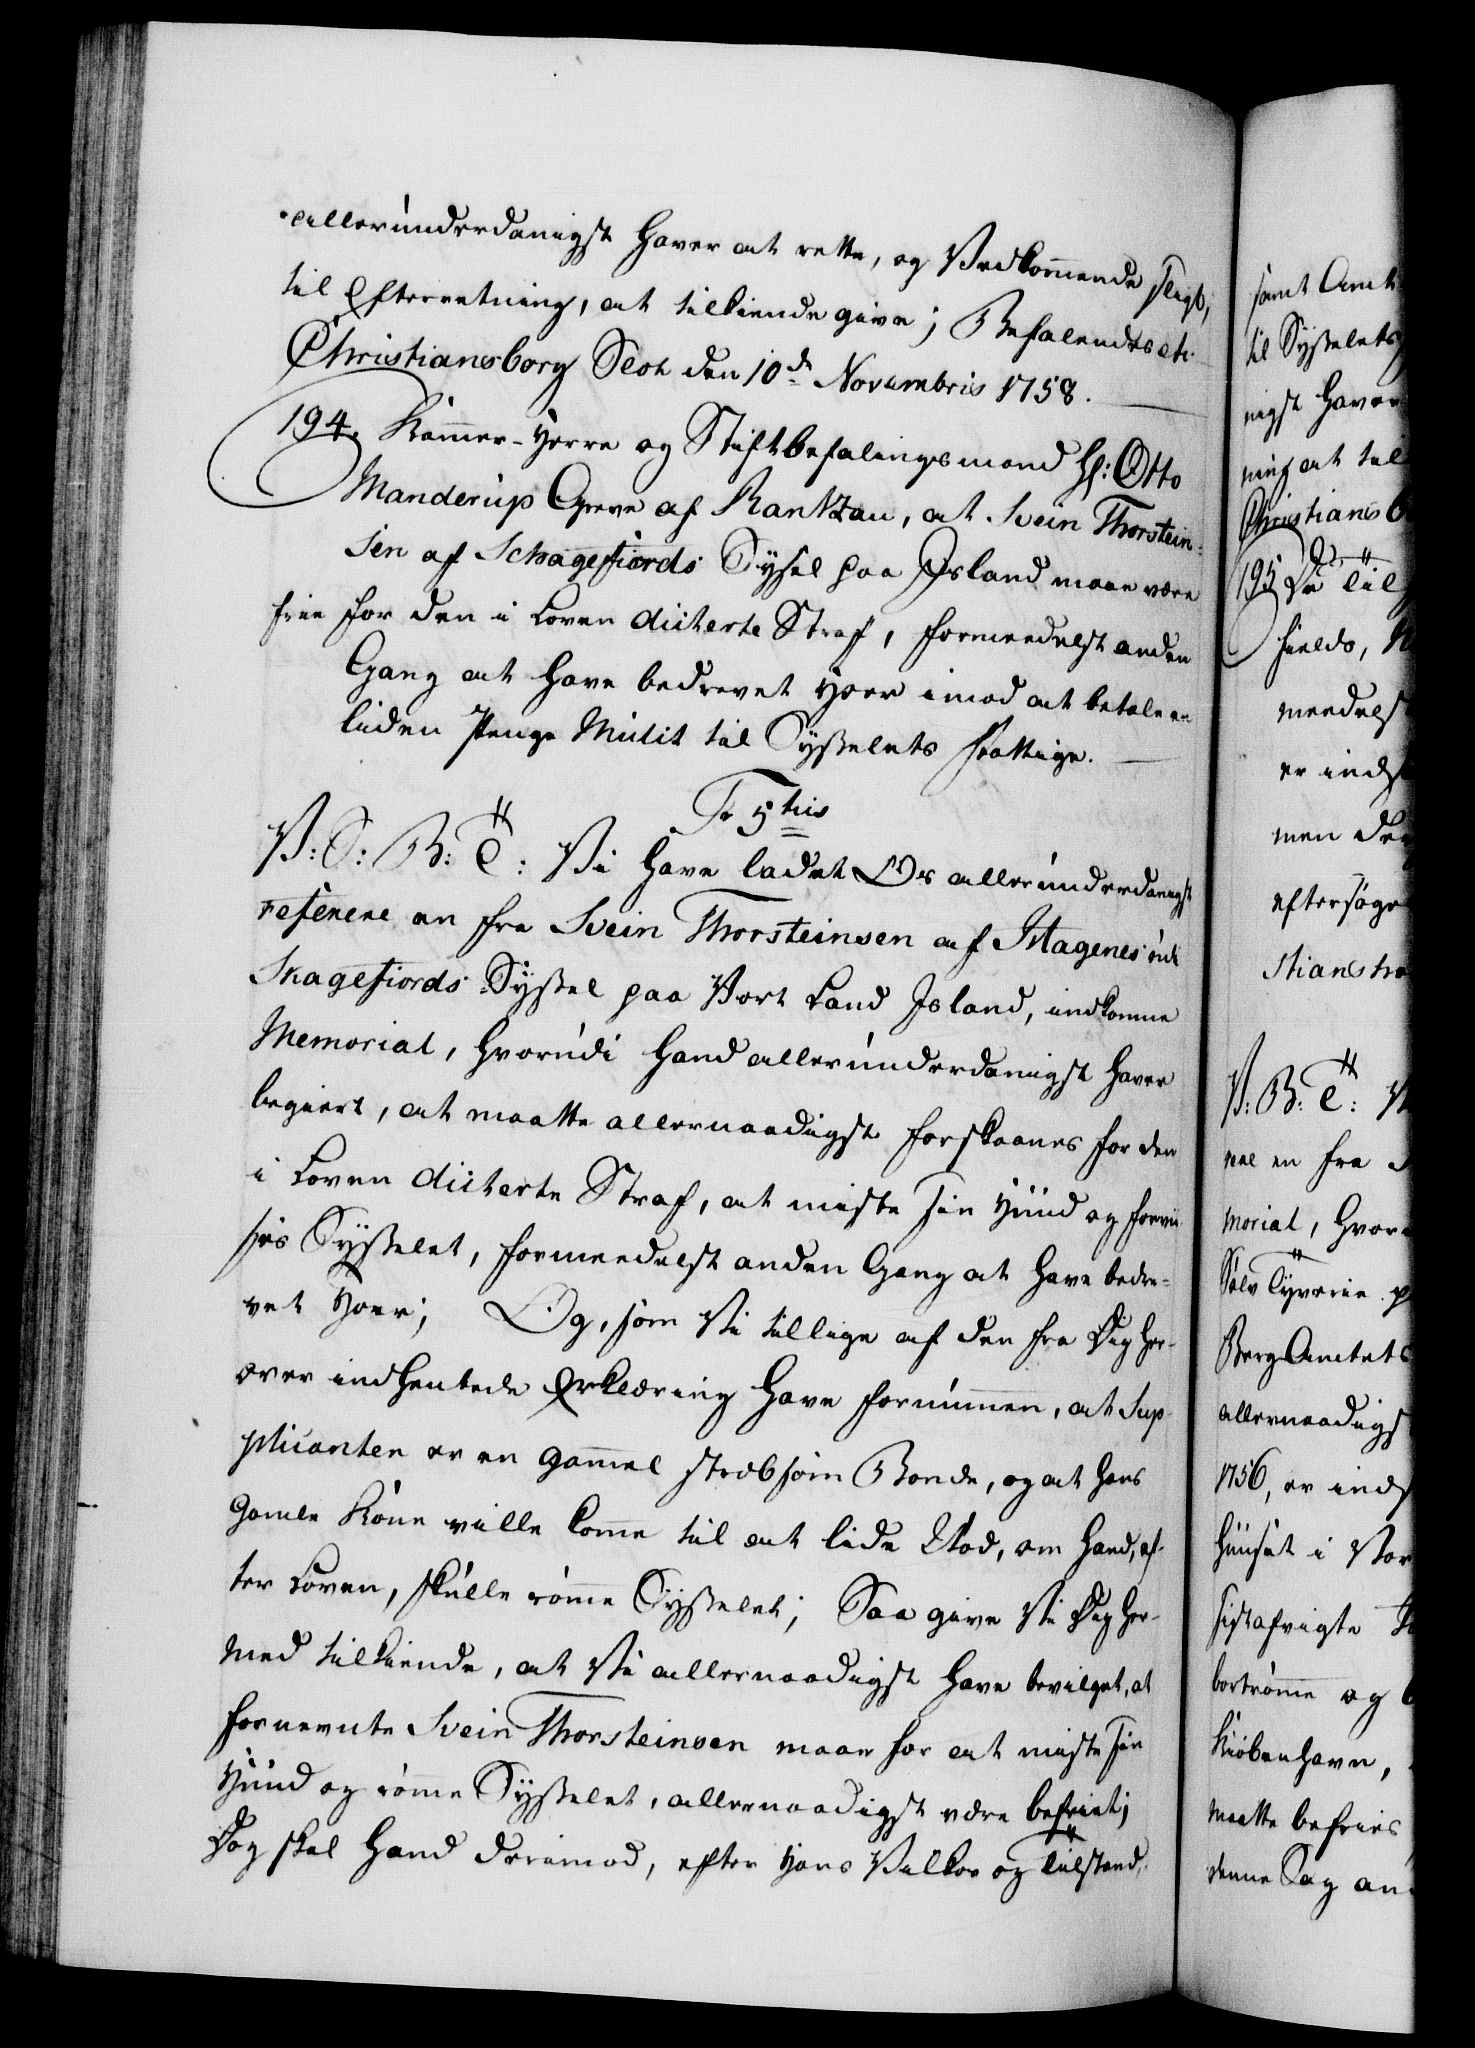 allerunderdanigst haver at rette, og Vedkommende sligt,
til Efterretning, at tilkiende give; Befalendes etc.
Christiansborg Slot den 10de Novembris 1758.
194. Kammer-Herre og Stiftbefalingsmand Hr: Otto
Manderup Greve af Rantzau, at Svein Thorstein-
sen af Schagefiords Sysel paa Island maae være
frie for den i Loven dicterte Straf, formeedelst anden
Gang at have bedrevet Hoer imod at betale en
liden Penge Mulct til Sysselets Fattige.
Fr 5tus
V: S: B: T: Vi have ladet Os allerunderdanigst
referere en fra Svein Thorsteinsen af udi
Skagefiords Syssel paa Vort Land Island, indkomne
Memorial, hvorudi hand allerunderdanigst haver
begiert, at maatte allernaadigst forskaanes for den
i Loven dicterte Straf, at miste sin Huud og forvii-
ses Sysselet, formeedelst anden Gang at have bedre-
vet Hoer; Og, som Vi tillige af den fra Dig her-
over indhentede Erklæring have fornummen, at Sup-
plicanten er en gammel stræbsom Bonde, og at hans
gamle Kone ville komme til at lide Nød, om hand, ef-
ter Loven, skulle rømme Sysselet; Saa give Vi Dig her-
med tilkiende, at Vi allernaadigst have bevilget, at
fornevnte Svein Thorsteinsen maae for at miste sin
Huud og rømme Sysselet, allernaadigst være befriet;
Dog skal hand derimod, efter hans Vilkor og Tilstand,
samt Amt
til Sysselets
nigst haver
ning at til
Christiansb
195 De til
fields,
meedelst
er inds
men der
eftersøge
stiansbo
V: B: T: V
rere en fra
morial, hvor
Sølv Tyverie p
Berg Amtets
allernaadigst
1756, er inds
huuset i Vor
sistafvigte
bortrømme og
Kiøbenhavn,
maatte befries
denne Sag an